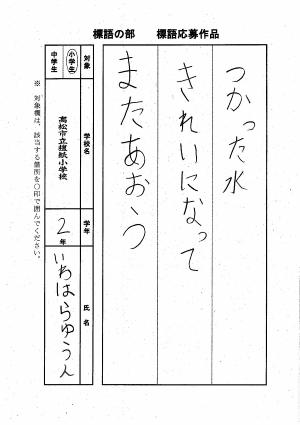 標語の部 標語応募作品
つかった水
きれいになって
またあおう
対象
小学生
中学生
学校名
高松市立植松小学校
学年
2年
氏名
いわはらゆうん
※ 対象欄は、該当する箇所を○印で囲んでください。